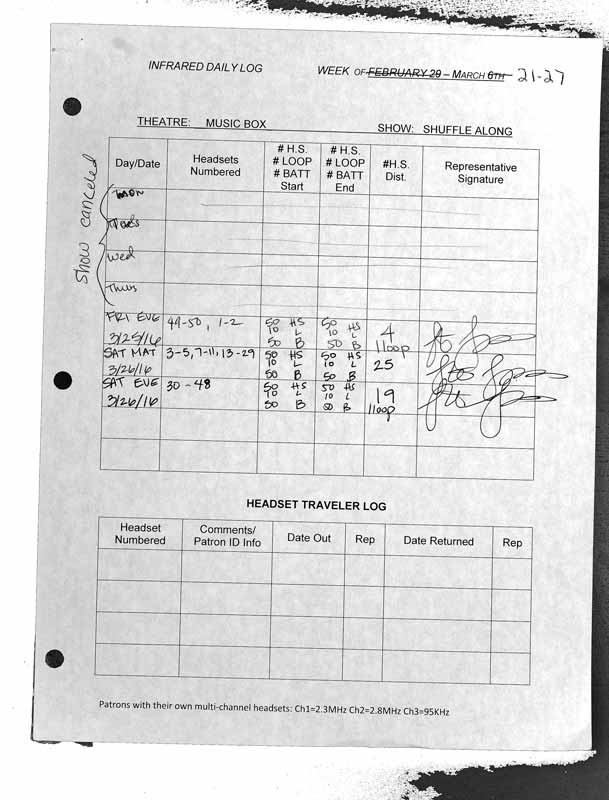 INFRARED DAILY LOG WEEK OF FEBRUARY 29 – MARCH 6TH 21-27
THEATRE: MUSIC BOX SHOW: SHUFFLE ALONG
Day/Date Headsets Numbered # H.S. # LOOP # BATT Start # H.S. # LOOP # BATT End #H.S. Dist. Representative Signature
Show canceled
Mon
Tues
Wed
Thurs
FRI EVE 49-50, 1-2 50 HS 50 HS 4
10 L 10 L
3/25/16 50 B 50 B 1loop
SAT MAT 3-5, 7-11, 13-29 50 HS 50 HS 25
10 L 10 L
3/26/16 50 B 50 B
SAT EVE 30-48 50 HS 50 HS 19
10 L 10 L
3/26/16 50 B 50 B 1loop
HEADSET TRAVELER LOG
Headset Numbered Comments/ Patron ID Info Date Out Rep Date Returned Rep
Patrons with their own multi-channel headsets: Ch1=2.3MHz Ch2=2.8MHz Ch3=95KHz